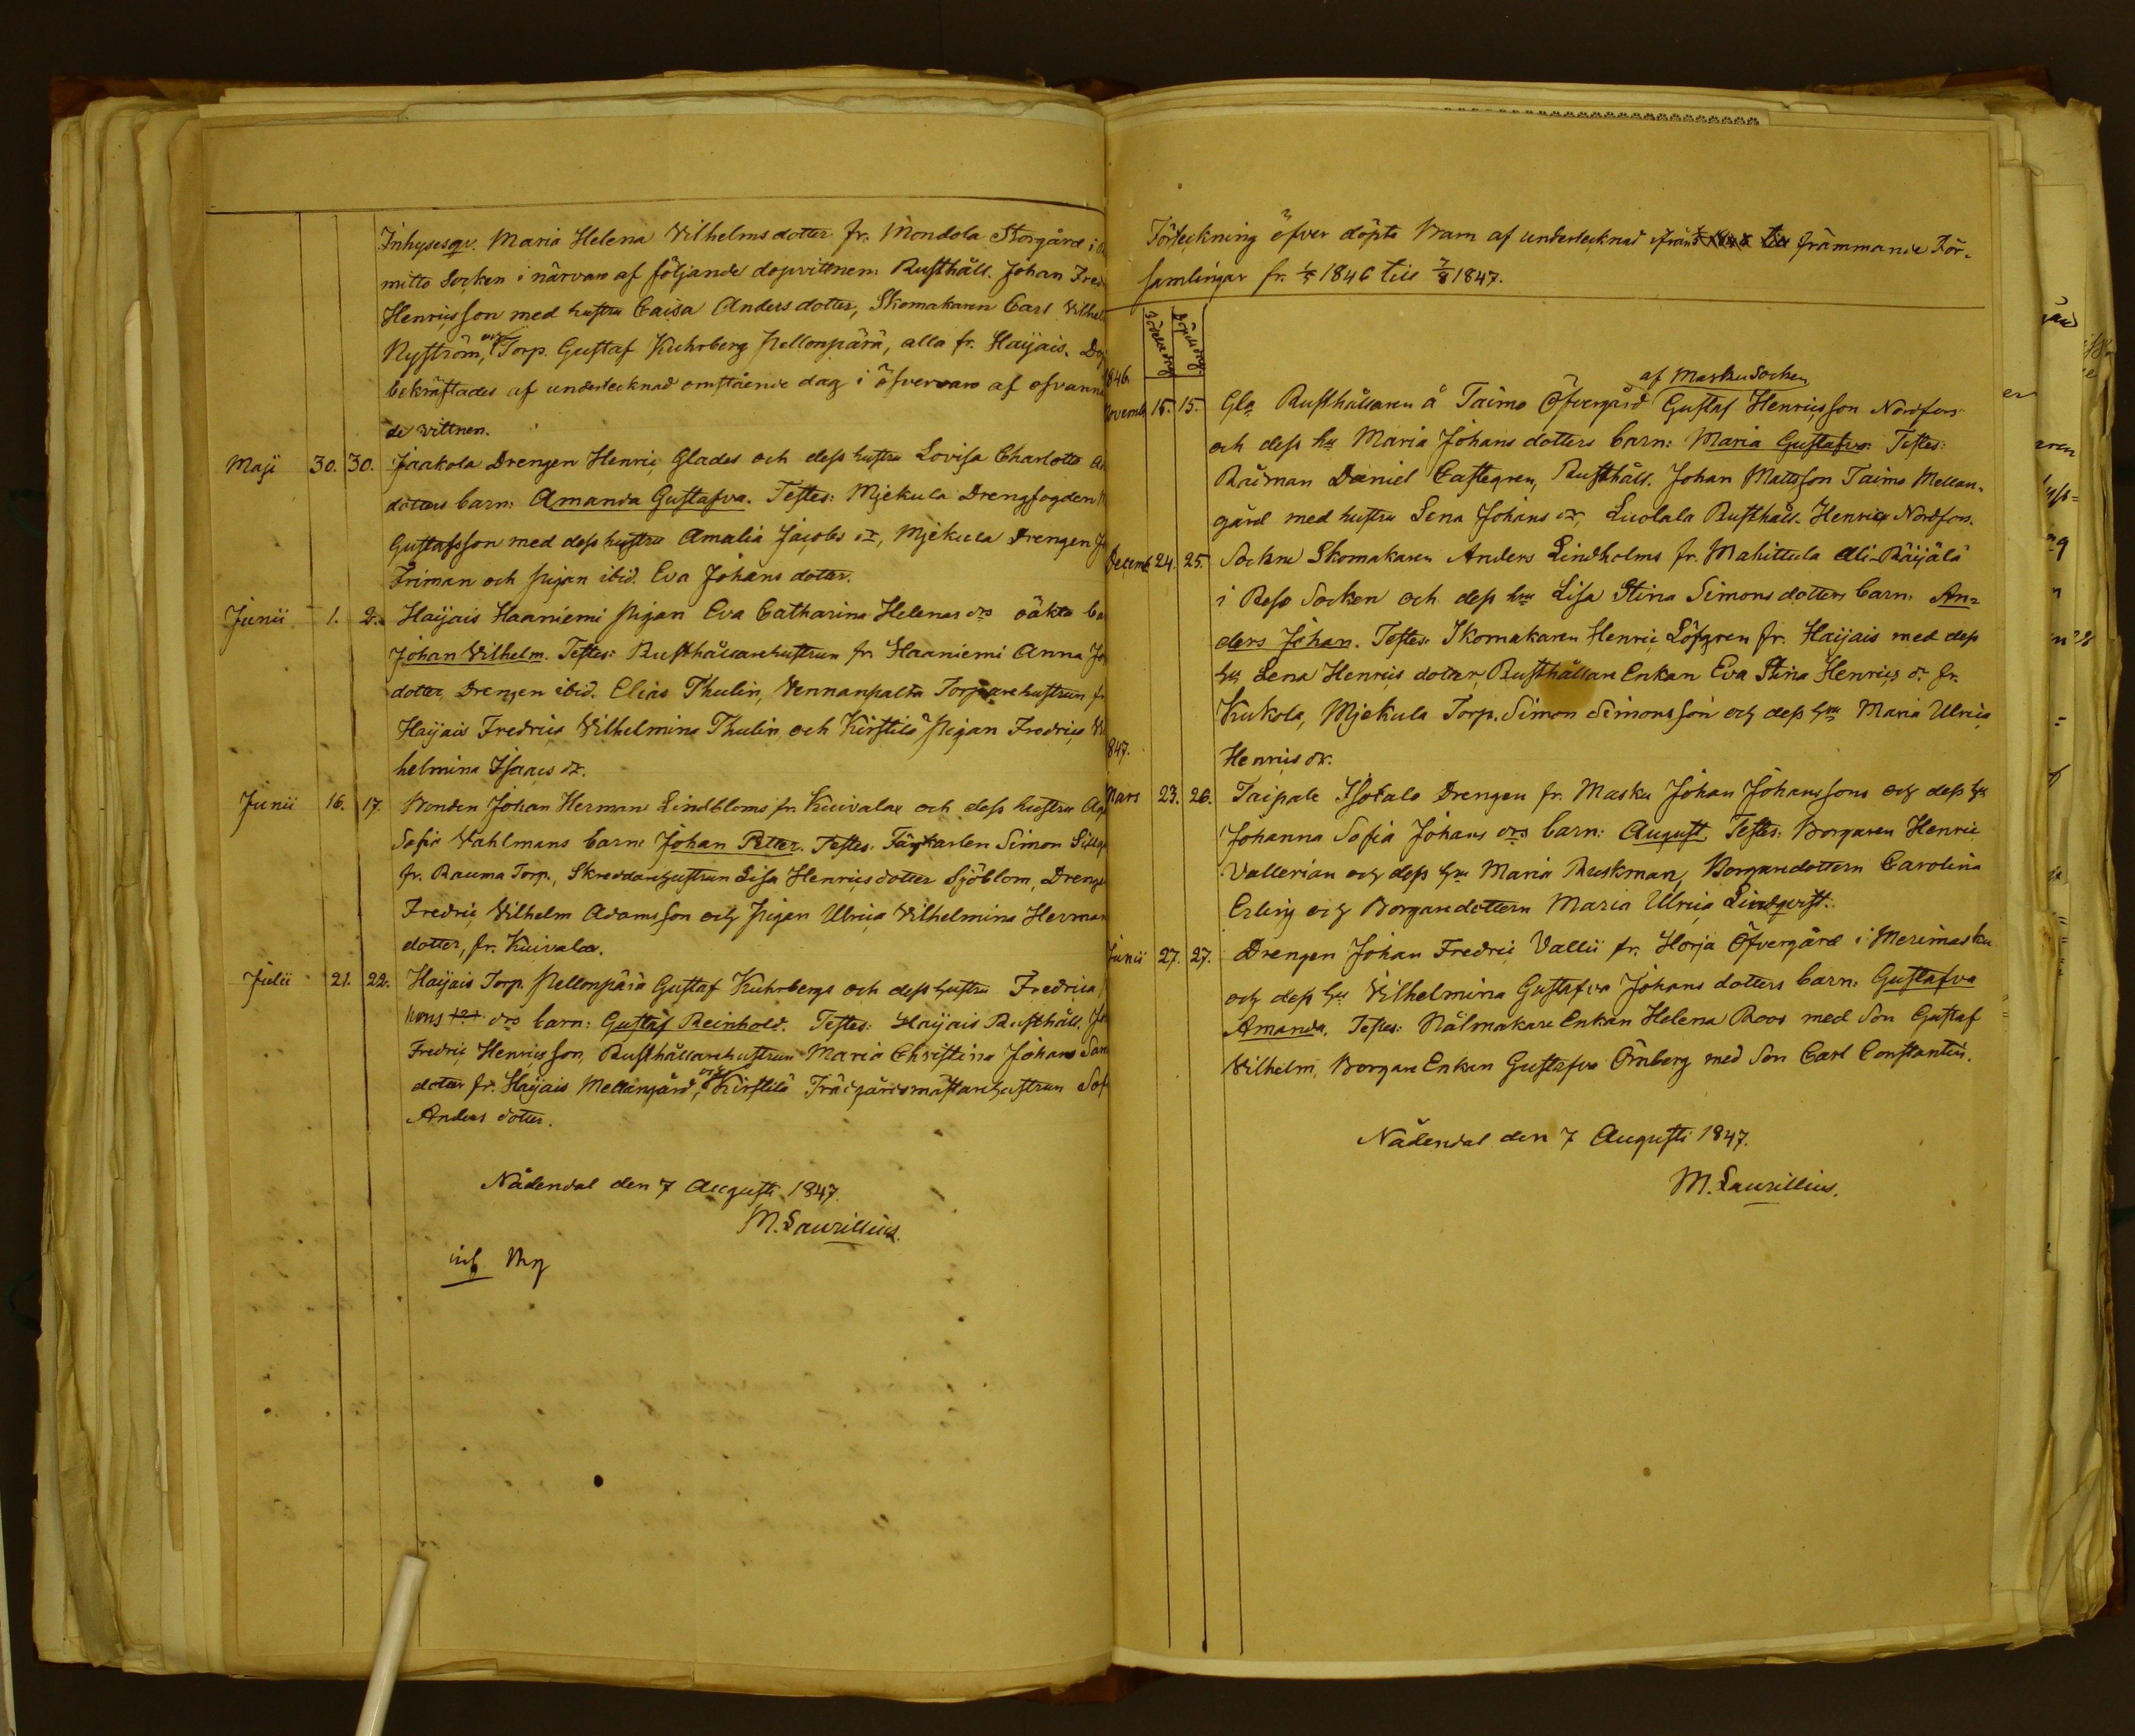 Inhysesqv. Maria Helena Vilhelmsdotter fr. Mondola Storgård i
mitto Socken i närvaro af följande dopvittnen: Rusthåll. Johan Fred
Henricsson med hustru Caisa Andersdotter, Skomakaren Carl Vilhel
Nyström, och Torp. Gustaf Kuhrberg Pellonpärä, alla fr. Haijais.
bekräftades af undertecknad omstående dag i öfvervaro af ofvann
de vittnen.
Maji 30. 30. Jaakola Drengen Henric Glades och dess hustru Lovisa Charlotta
dotters barn: Amanda Gustafva. Testes: Mjekula Drengfogden
Gustafsson med dess hustru Amalia Jacobs dr, Mjekula Drengen
Friman och pigan ibid. Eva Johans dotter.
Junii 1. 2. Haijais Haaniemi pigan Eva Catharina Helenas drs oäkta ba
Johan Vilhelm. Testes: Rusthållarehustrun fr. Haaniemi Anna Jo
dotter, Drengen ibid. Elias Thulin, Vennanpalta Torparehustrun fr
Haijais Fredrica Vilhelmina Thulin, och Kirstilä pigan Fredrica Vil
helmina Isaacs dr.
Junii 16. 17. Bonden Johan Herman Lindbloms fr. Kuivalax och dess hustru
Sofia Vahlmans barn: Johan Petter. Testes: Färgkarlen Simon
fr. Rauma Torp., Skreddarehustrun Lisa Henricsdotter Sjöblom, Drenge
Fredric Vilhelm Adamsson och pigan Ulrica Vilhelmina Herman
dotter, fr. Kuivalax.
Julii 21. 22. Haijais Torp. Pellonpärä Gustaf Kuhrbergs och dess hustru Fredrica
drs barn: Gustaf Reinhold. Testes: Haijais Rusthåll. Jo
Fredric Henricsson, Rusthållarehustrun Maria Christina Johans
dotter fr. Haijais Mellangård, och Kirstilä Trädgårdsmästarehustrun Sof
Anders dotter.
Nådendal den 7 Augusti 1847.
M. Laurillius.
Förteckning öfver döpte Barn af undertecknad ifrån främmande För-
samlingar fr. 1/5 1846 till 7/8 1847.
Födelsedag Döpelsedag
1846.
af Masku Socken
Novemb. 15. 15. Gla Rusthållaren å Taimo Öfvergård Gustaf Henricsson Nordfors
och dess hu Maria Johans dotters barn: Maria Gustafva. Testes:
Rådman Daniel Castegren, Rusthåll. Johan Mattsson Taimo Mellan-
gård med hustru Lena Johans dr, Luolala Rusthåll. Henric Nordfors.
Decemb. 24. 25. Sockne Skomakaren Anders Lindholms fr. Mahittula Ali-Räijälä
i Reso Socken och dess hus Lisa Stina Simonsdotters barn: An-
ders Johan. Testes: Skomakaren Henric Löfgren fr. Haijais med dess
hu Lena Henrics dotter, Rusthållare Enkan Eva Stina Henrics dr fr.
Kukola, Mjekula Torp. Simon Simonsson och dess hu Maria Ulrica
Henrics dr.
1847.
Mars 23. 26. Taipale Isotalo Drengen fr. Masku Johan Johanssons och dess hu
Johanna Sofia Johans drs barn: August. Testes: Borgaren Henric
Vallerian och dess hu Maria Ruskman, Borgaredottern Carolina
Erling och Borgaredottern Maria Ulrica Lindqvist.
Junii 27. 27. Drengen Johan Fredric Vallii fr. Horja Öfvergård i Merimasku
och dess hu Vilhelmina Gustafva Johans dotters barn: Gustafva
Amanda. Testes: Nålmakare Enkan Helena Roos med Son Gustaf
Vilhelm, Borgare Enkan Gustafva Örnberg med Son Carl Constantin.
Nådendal den 7 Augusti 1847.
M. Laurillius.